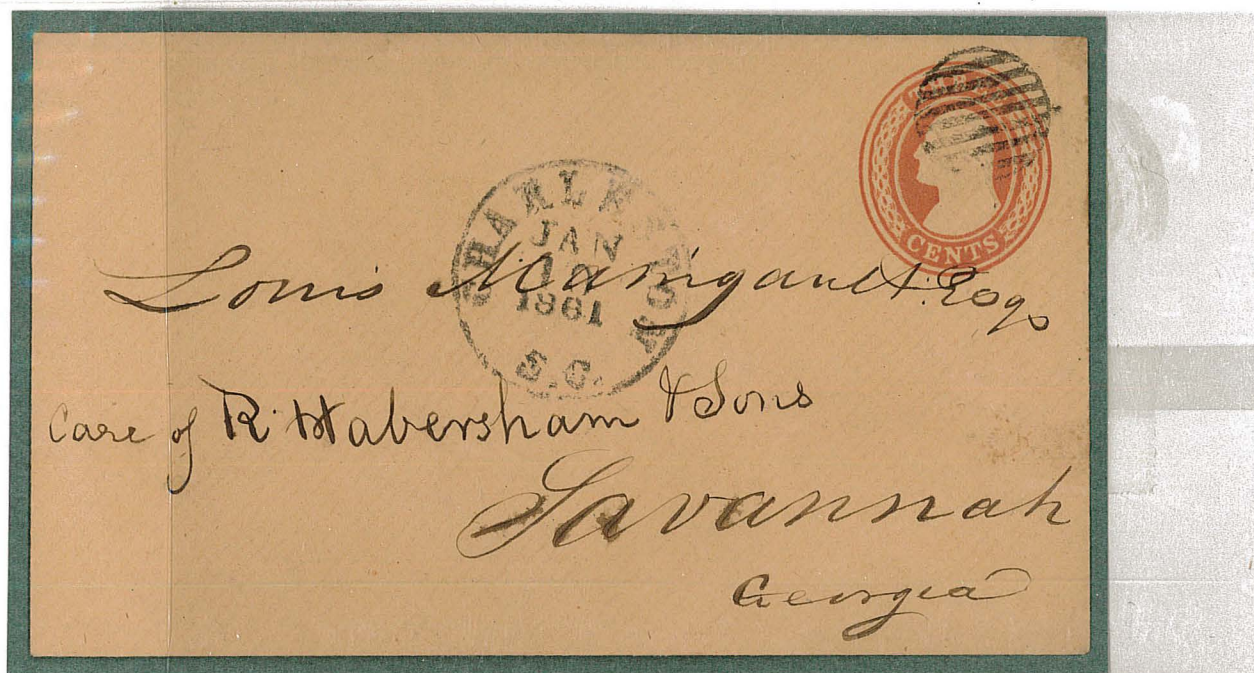 CENTS
CHARLESTON
JAN
1861
S.C.
Louis Manigault Esqr
Care of R Habersham & Sons
Savannah
Georgia